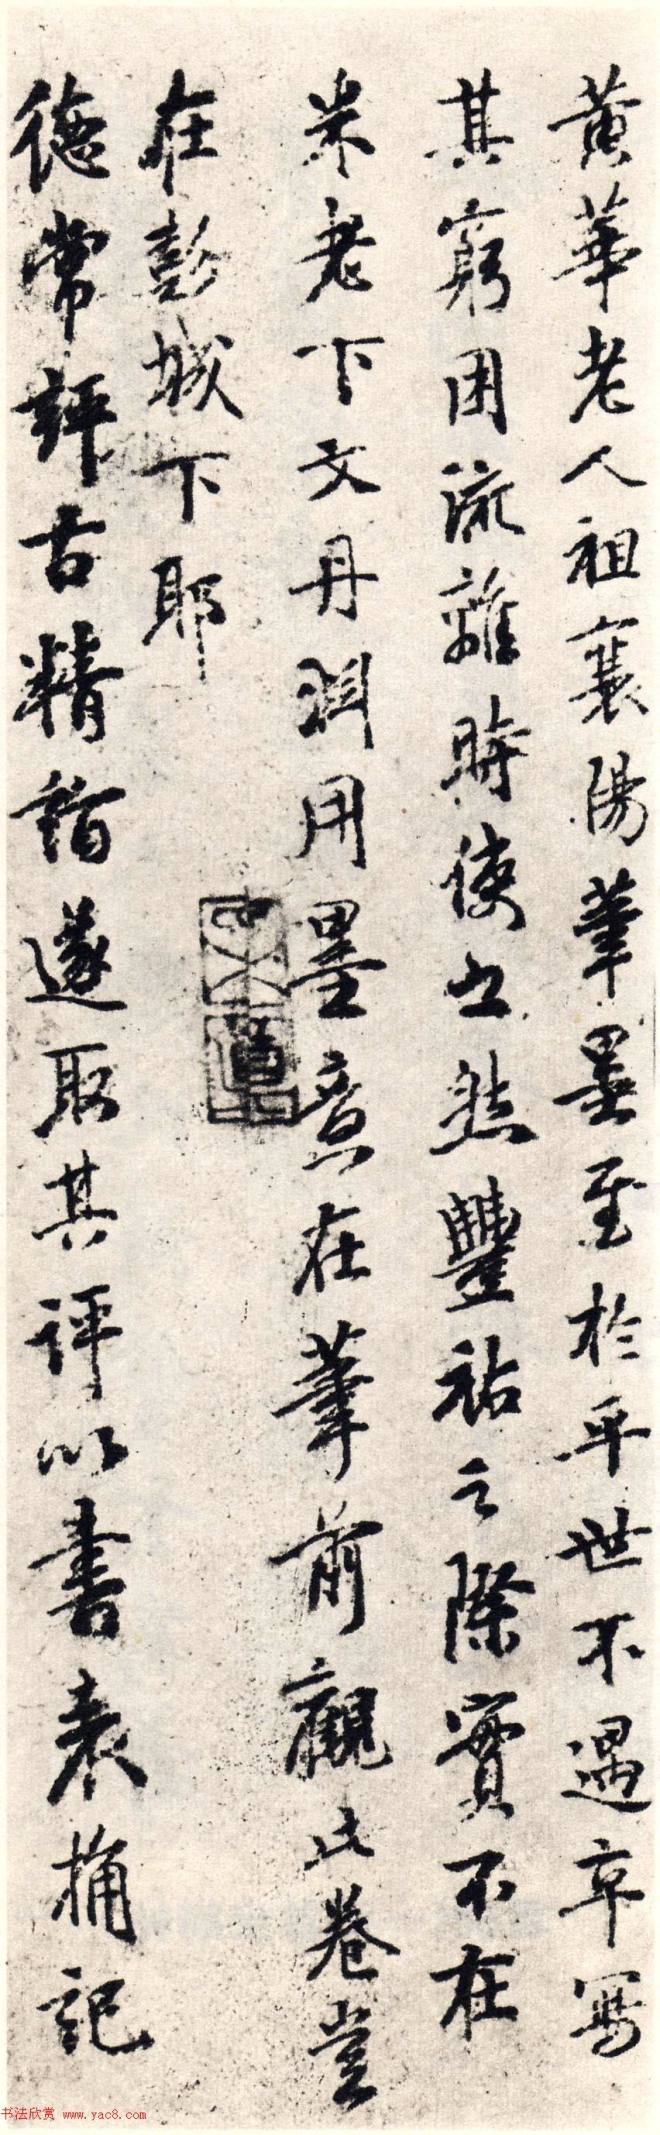 黄華老人祖襄陽筆墨至於平世不遇卒寫
其窮困流離時使之然豐祐之際實不在
米老下文丹淵用墨意在筆前觀此卷豈
在彭城下耶
德常評古精詣遂取其評以書袁桷記
书法欣赏 www.yac8.com